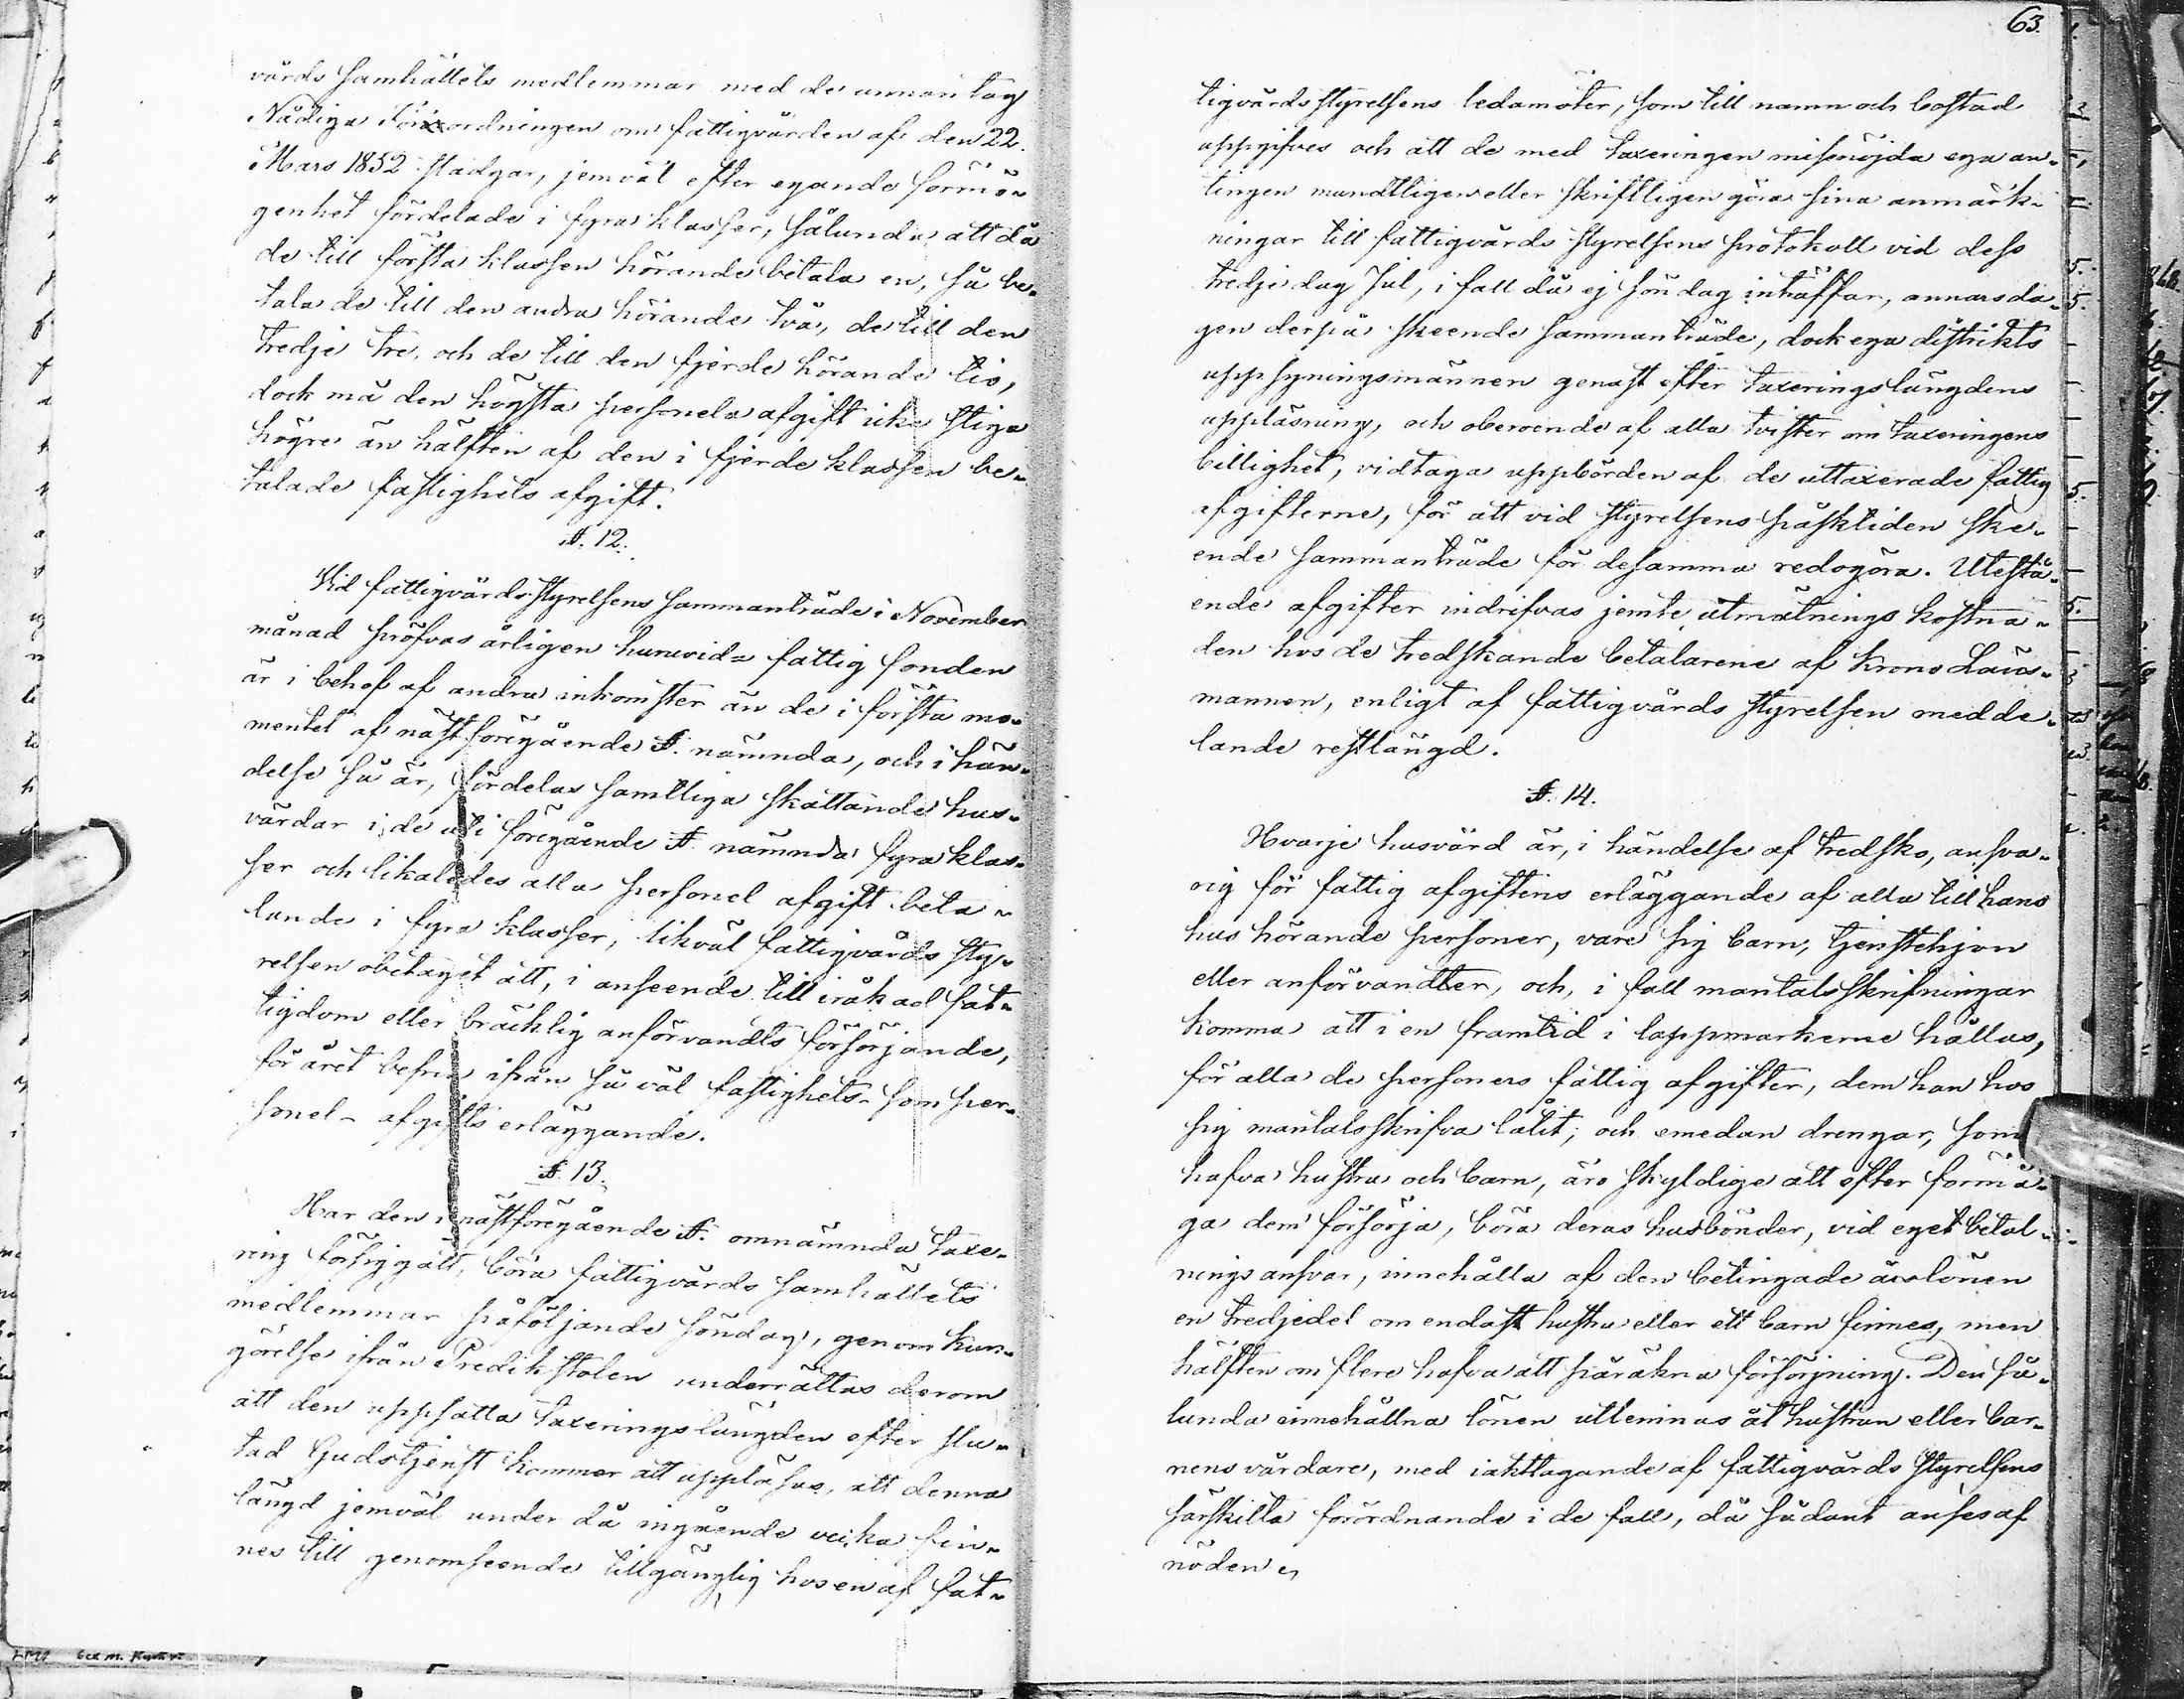 vårds samhällets medlemmar med de undantag
Nådiga Förordningen om fattigvården af den 22.
Mars 1852 stadgar, jemväl efter egande förmö-
genhet fördelade i fyra klasser, sålunda att då
de till första klassen hörande betala en, så be-
tala de till den andra hörande två, de till den
tredje tre, och de till den fjerde hörande tio,
dock må den högsta personela afgift icke stiga
högre än hälften af den i fjerde klassen be-
talade fastighets afgift.
§. 12.
Vid fattigvårds styrelsens sammanträde i November
månad pröfvas årligen huruvida fattig fonden
är i behof af andra inkomster än de i första mo-
mentet af nästföregående §. nämnda, och i hän-
delse så är, fördelas samtliga skattande hus-
värdar i de uti föregående §. nämnda fyra klas-
ser och likaledes alla personel afgift beta-
lande i fyra klasser, likväl fattigvårds sty-
relsen obetaget att, i anseende till iråkad fat-
tigdom eller bräcklig anförvandts försörjande,
för året befria ifrån så väl fastighets- som per-
sonel- afgifts erläggande.
§. 13.
Har den i nästföregående §. omnämnda taxe-
ring försiggått, böra fattigvårds samhällets
medlemmar påföljande söndag, genom kun-
görelse ifrån Predikstolen underrättas derom
att den uppsatta taxeringslängden efter slu-
tad Gudstjenst kommer att uppläsas, att denna
längd jemväl under då ingående vecka fin-
nes till genomseende tillgänglig hos en af fat-
63.
tigvårdsstyrelsens ledamöter, som till namn och bostad
uppgifves och att de med taxeringen missnöjda ega an-
tingen mundtligen eller skriftligen göra sina anmärk-
ningar till fattigvårds styrelsens protokoll vid dess
tredje dag Jul, i fall då ej söndag inträffar, annars da-
gen derpå skeende sammanträde, dock ega distrikts
uppsyningsmännen genast efter taxeringslängdens
uppläsning, och oberoende af alla tvister om taxeringens
billighet, vidtaga uppbörden af de uttaxerade fattig
afgifterne, för att vid styrelsens påsktiden ske-
ende sammanträde för desamma redogöra. Utestå-
ende afgifter indrifvas jemte utmätnings kostna-
den hos de tredskande betalarene af Krono Läns-
mannen, enligt af fattigvårds styrelsen medde-
lande restlängd.
§. 14.
Hvarje husvärd är, i händelse af tredsko, ansva-
rig för fattig afgiftens erläggande af alla till hans
hus hörande personer, vare sig barn, tjenstehjon
eller anförvandter, och, i fall mantalsskrifningar
komma att i en framtid i lappmarkerne hållas,
för alla de personers fattig afgifter, dem han hos
sig mantalsskrifva låtit; och emedan drengar, som
hafva hustru och barn, äro skyldige att efter förmå-
ga dem försörja, böra deras husbönder, vid eget betal-
nings ansvar, innehålla af den betingade årslönen
en tredjedel om endast hustru eller ett barn finnes, men
hälften om flere hafva att påräkna försörjning. Den så-
lunda innehållna lönen utlemnas åt hustrun eller bar-
nens vårdare, med iakttagande af fattigvårds styrelsens
särskilta förordnande i de fall, då sådant anses af
nöden.